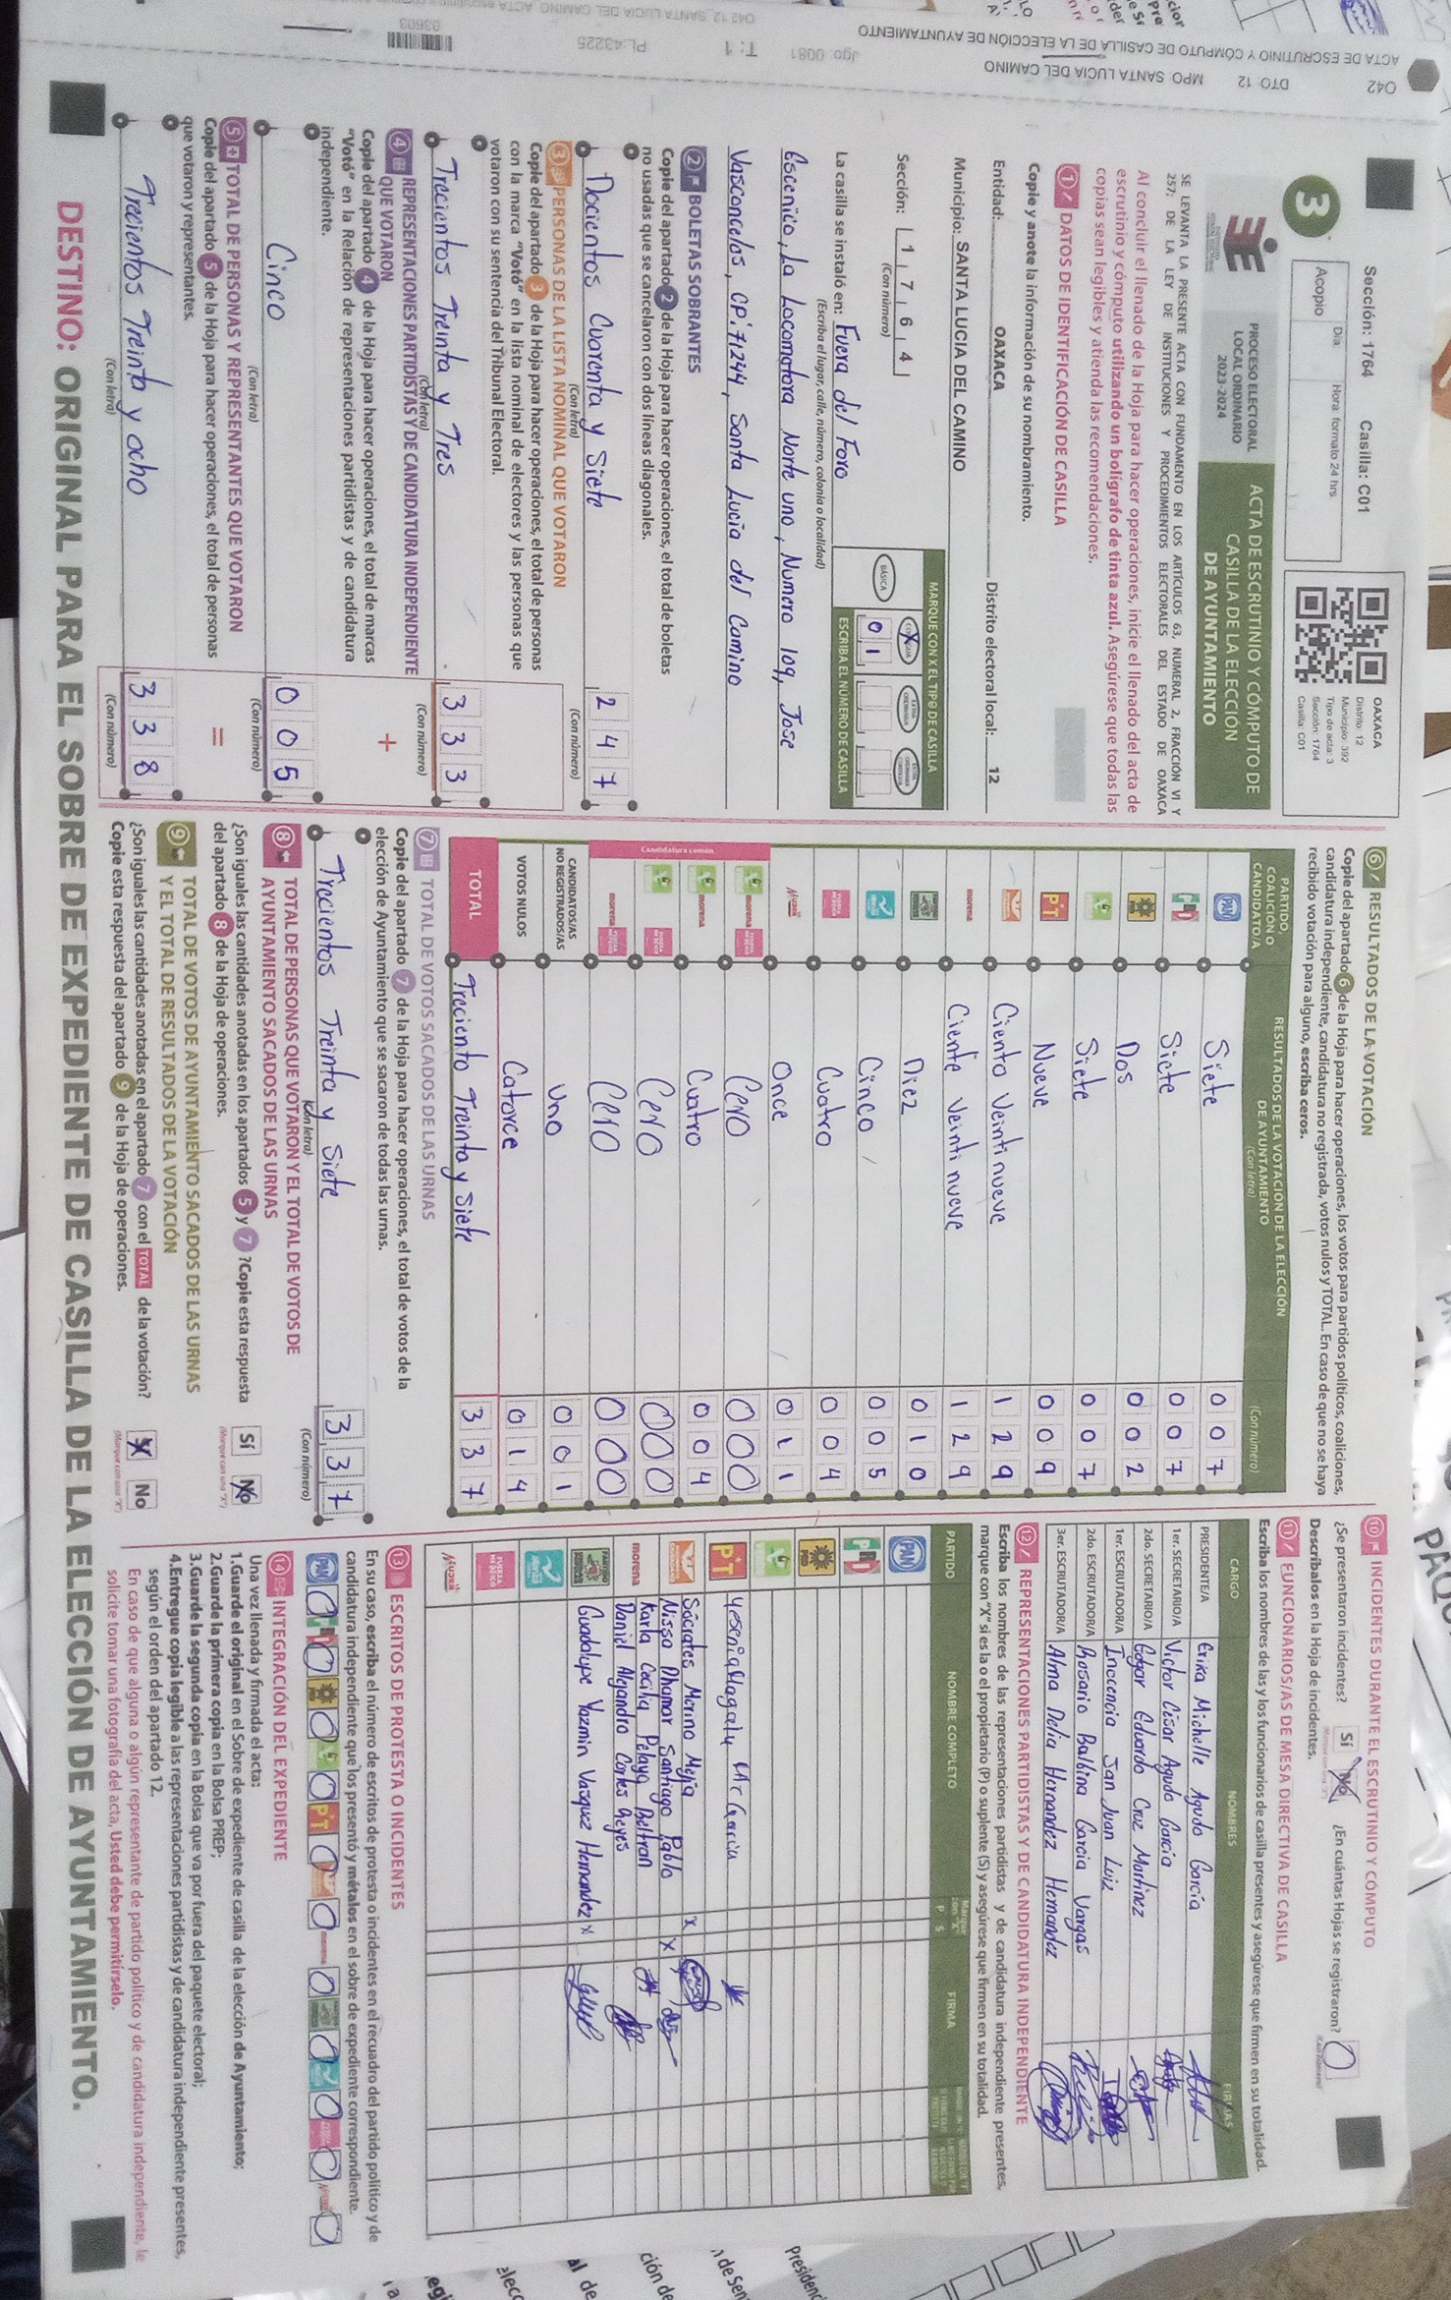 Sección: 1764 Casilla: C01
Día: Hora: formato 24 hrs
Acopio
OAXACA
Distrito: 12
Municipio: 392
Tipo de acta: 3
Sección: 1764
Casilla: C01
3
PROCESO ELECTORAL
LOCAL ORDINARIO
2023-2024
ACTA DE ESCRUTINIO Y CÓMPUTO DE
CASILLA DE LA ELECCIÓN
DE AYUNTAMIENTO
SE LEVANTA LA PRESENTE ACTA CON FUNDAMENTO EN LOS ARTÍCULOS 63, NUMERAL 2, FRACCIÓN VI Y
257; DE LA LEY DE INSTITUCIONES Y PROCEDIMIENTOS ELECTORALES DEL ESTADO DE OAXACA
Al concluir el llenado de la Hoja para hacer operaciones, inicie el llenado del acta de
escrutinio y cómputo utilizando un bolígrafo de tinta azul. Asegúrese que todas las
copias sean legibles y atienda las recomendaciones.
1 DATOS DE IDENTIFICACIÓN DE CASILLA
Copie y anote la información de su nombramiento.
Entidad: OAXACA Distrito electoral local: 12
Municipio: SANTA LUCIA DEL CAMINO
Sección: 1 7 6 4
(Con número)
MARQUE CON X EL TIPO DE CASILLA
BÁSICA
0 1
ESCRIBA EL NÚMERO DE CASILLA
La casilla se instaló en: Fuera del Foro
(Escriba el lugar, calle, número, colonia o localidad)
Escenico, La Locomotora Norte uno, Numero 109, Jose
Vasconcelos, CP: 71244, Santa Lucia del Camino
2 BOLETAS SOBRANTES
Copie del apartado 2 de la Hoja para hacer operaciones, el total de boletas
no usadas que se cancelaron con dos líneas diagonales.
Docientos Cuarenta y Siete 2 4 7
(Con letra) (Con número)
3 PERSONAS DE LA LISTA NOMINAL QUE VOTARON
Copie del apartado 3 de la Hoja para hacer operaciones, el total de personas
con la marca "Votó" en la lista nominal de electores y las personas que
votaron con su sentencia del Tribunal Electoral.
Trecientos Treinta y Tres 3 3 3
(Con letra) (Con número)
4 REPRESENTACIONES PARTIDISTAS Y DE CANDIDATURA INDEPENDIENTE
QUE VOTARON
+
Copie del apartado 4 de la Hoja para hacer operaciones, el total de marcas
"Votó" en la Relación de representaciones partidistas y de candidatura
independiente.
Cinco 0 0 5
(Con letra) (Con número)
5 TOTAL DE PERSONAS Y REPRESENTANTES QUE VOTARON
=
Copie del apartado 5 de la Hoja para hacer operaciones, el total de personas
que votaron y representantes.
Trecientos Treinta y ocho 3 3 8
(Con letra) (Con número)
6 RESULTADOS DE LA VOTACIÓN
Copie del apartado 6 de la Hoja para hacer operaciones, los votos para partidos políticos, coaliciones,
candidatura independiente, candidatura no registrada, votos nulos y TOTAL. En caso de que no se haya
recibido votación para alguno, escriba ceros.
PARTIDO,
COALICIÓN O
CANDIDATO/A
RESULTADOS DE LA VOTACIÓN DE LA ELECCIÓN
DE AYUNTAMIENTO
(Con letra) (Con número)
PAN Siete 0 0 7
PRI Siete 0 0 7
Dos 0 0 2
Siete 0 0 7
PT Nueve 0 0 9
Ciento Veinti nueve 1 2 9
morena Ciento Veinti nueve 1 2 9
Diez 0 1 0
Cinco 0 0 5
Cuatro 0 0 4
MUJER Once 0 1 1
Candidatura común
morena Cero 0 0 0
morena Cuatro 0 0 4
Cero 0 0 0
morena Cero 0 0 0
CANDIDATOS/AS
NO REGISTRADOS/AS
Uno 0 0 1
VOTOS NULOS Catorce 0 1 4
TOTAL Treciento Treinta y Siete 3 3 7
7 TOTAL DE VOTOS SACADOS DE LAS URNAS
Copie del apartado 7 de la Hoja para hacer operaciones, el total de votos de la
elección de Ayuntamiento que se sacaron de todas las urnas.
Trecientos Treinta y Siete 3 3 7
(Con letra) (Con número)
8 TOTAL DE PERSONAS QUE VOTARON Y EL TOTAL DE VOTOS DE
AYUNTAMIENTO SACADOS DE LAS URNAS
¿Son iguales las cantidades anotadas en los apartados 5 y 7 ?Copie esta respuesta
del apartado 8 de la Hoja de operaciones.
Sí No
(Marque con una "X")
9 TOTAL DE VOTOS DE AYUNTAMIENTO SACADOS DE LAS URNAS
Y EL TOTAL DE RESULTADOS DE LA VOTACIÓN
¿Son iguales las cantidades anotadas en el apartado 7 con el TOTAL de la votación?
Copie esta respuesta del apartado 9 de la Hoja de operaciones.
Sí No
(Marque con una "X")
10 INCIDENTES DURANTE EL ESCRUTINIO Y CÓMPUTO
¿Se presentaron incidentes? Sí No ¿En cuántas Hojas se registraron? 0
Descríbalos en la Hoja de incidentes.
11 FUNCIONARIOS/AS DE MESA DIRECTIVA DE CASILLA
Escriba los nombres de las y los funcionarios de casilla presentes y asegúrese que firmen en su totalidad.
CARGO NOMBRES FIRMAS
PRESIDENTE/A Erika Michelle Agudo García
1er. SECRETARIO/A Victor César Agudo García
2do. SECRETARIO/A Edgar Eduardo Cruz Martinez
1er. ESCRUTADOR/A Inocencia San Juan Luiz
2do. ESCRUTADOR/A Rosario Balbina Garcia Vargas
3er. ESCRUTADOR/A Alma Delia Hernandez Hernandez
12 REPRESENTACIONES PARTIDISTAS Y DE CANDIDATURA INDEPENDIENTE
Escriba los nombres de las representaciones partidistas y de candidatura independiente presentes,
marque con "X" si es la o el propietario (P) o suplente (S) y asegúrese que firmen en su totalidad.
PARTIDO NOMBRE COMPLETO P S FIRMA
PAN
PRI
PRD
PT
Sócrates Merino Mejía X
Nissa Dhamar Santiago Pablo X
morena Karla Cecilia Pelayo Beltran
Daniel Alejandro Cortes Reyes
Guadalupe Yazmin Vasquez Hernandez X
MUJER
13 ESCRITOS DE PROTESTA O INCIDENTES
En su caso, escriba el número de escritos de protesta o incidentes en el recuadro del partido político y de
candidatura independiente que los presentó y métalos en el sobre de expediente correspondiente.
PAN 0 PRI 0 0 0 PT 0 0 0 0 0 0 0
14 INTEGRACIÓN DEL EXPEDIENTE
Una vez llenada y firmada el acta:
1.Guarde el original en el Sobre de expediente de casilla de la elección de Ayuntamiento;
2.Guarde la primera copia en la Bolsa PREP;
3.Guarde la segunda copia en la Bolsa que va por fuera del paquete electoral;
4.Entregue copia legible a las representaciones partidistas y de candidatura independiente presentes,
según el orden del apartado 12.
En caso de que alguna o algún representante de partido político y de candidatura independiente, le
solicite tomar una fotografía del acta, Usted debe permitírselo.
DESTINO: ORIGINAL PARA EL SOBRE DE EXPEDIENTE DE CASILLA DE LA ELECCIÓN DE AYUNTAMIENTO.
042 DTO. 12 MPO. SANTA LUCIA DEL CAMINO
ACTA DE ESCRUTINIO Y CÓMPUTO DE CASILLA DE LA ELECCIÓN DE AYUNTAMIENTO
Jgo: 0081 T: 1 PL:43225
03603